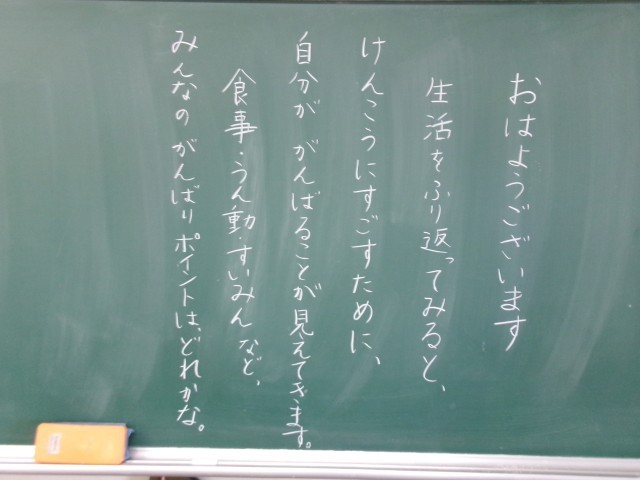 おはようございます
生活をふり返ってみると、
けんこうにすごすために、
自分が がんばることが見えてきます。
食事・うん動・すいみんなど、
みんなの がんばりポイントは、どれかな。